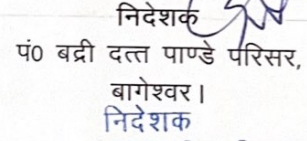 निदेशक
पं0 बद्री दत्त पाण्डे परिसर,
बागेश्वर।
निदेशक